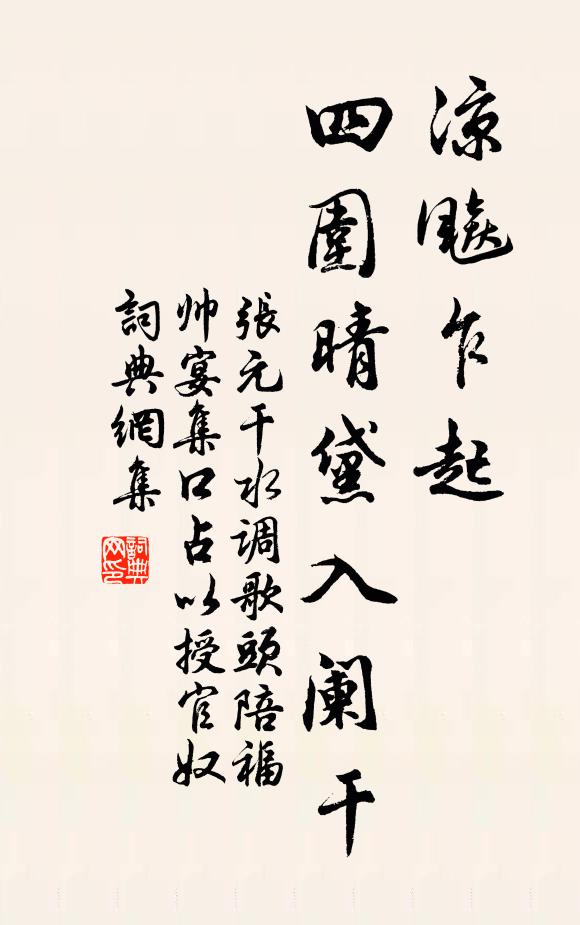 涼飈乍起
四圍晴黛入闌干
張元干水调歌頭陪福
帅宴集口占以授官奴
詞典網集
詞典网印